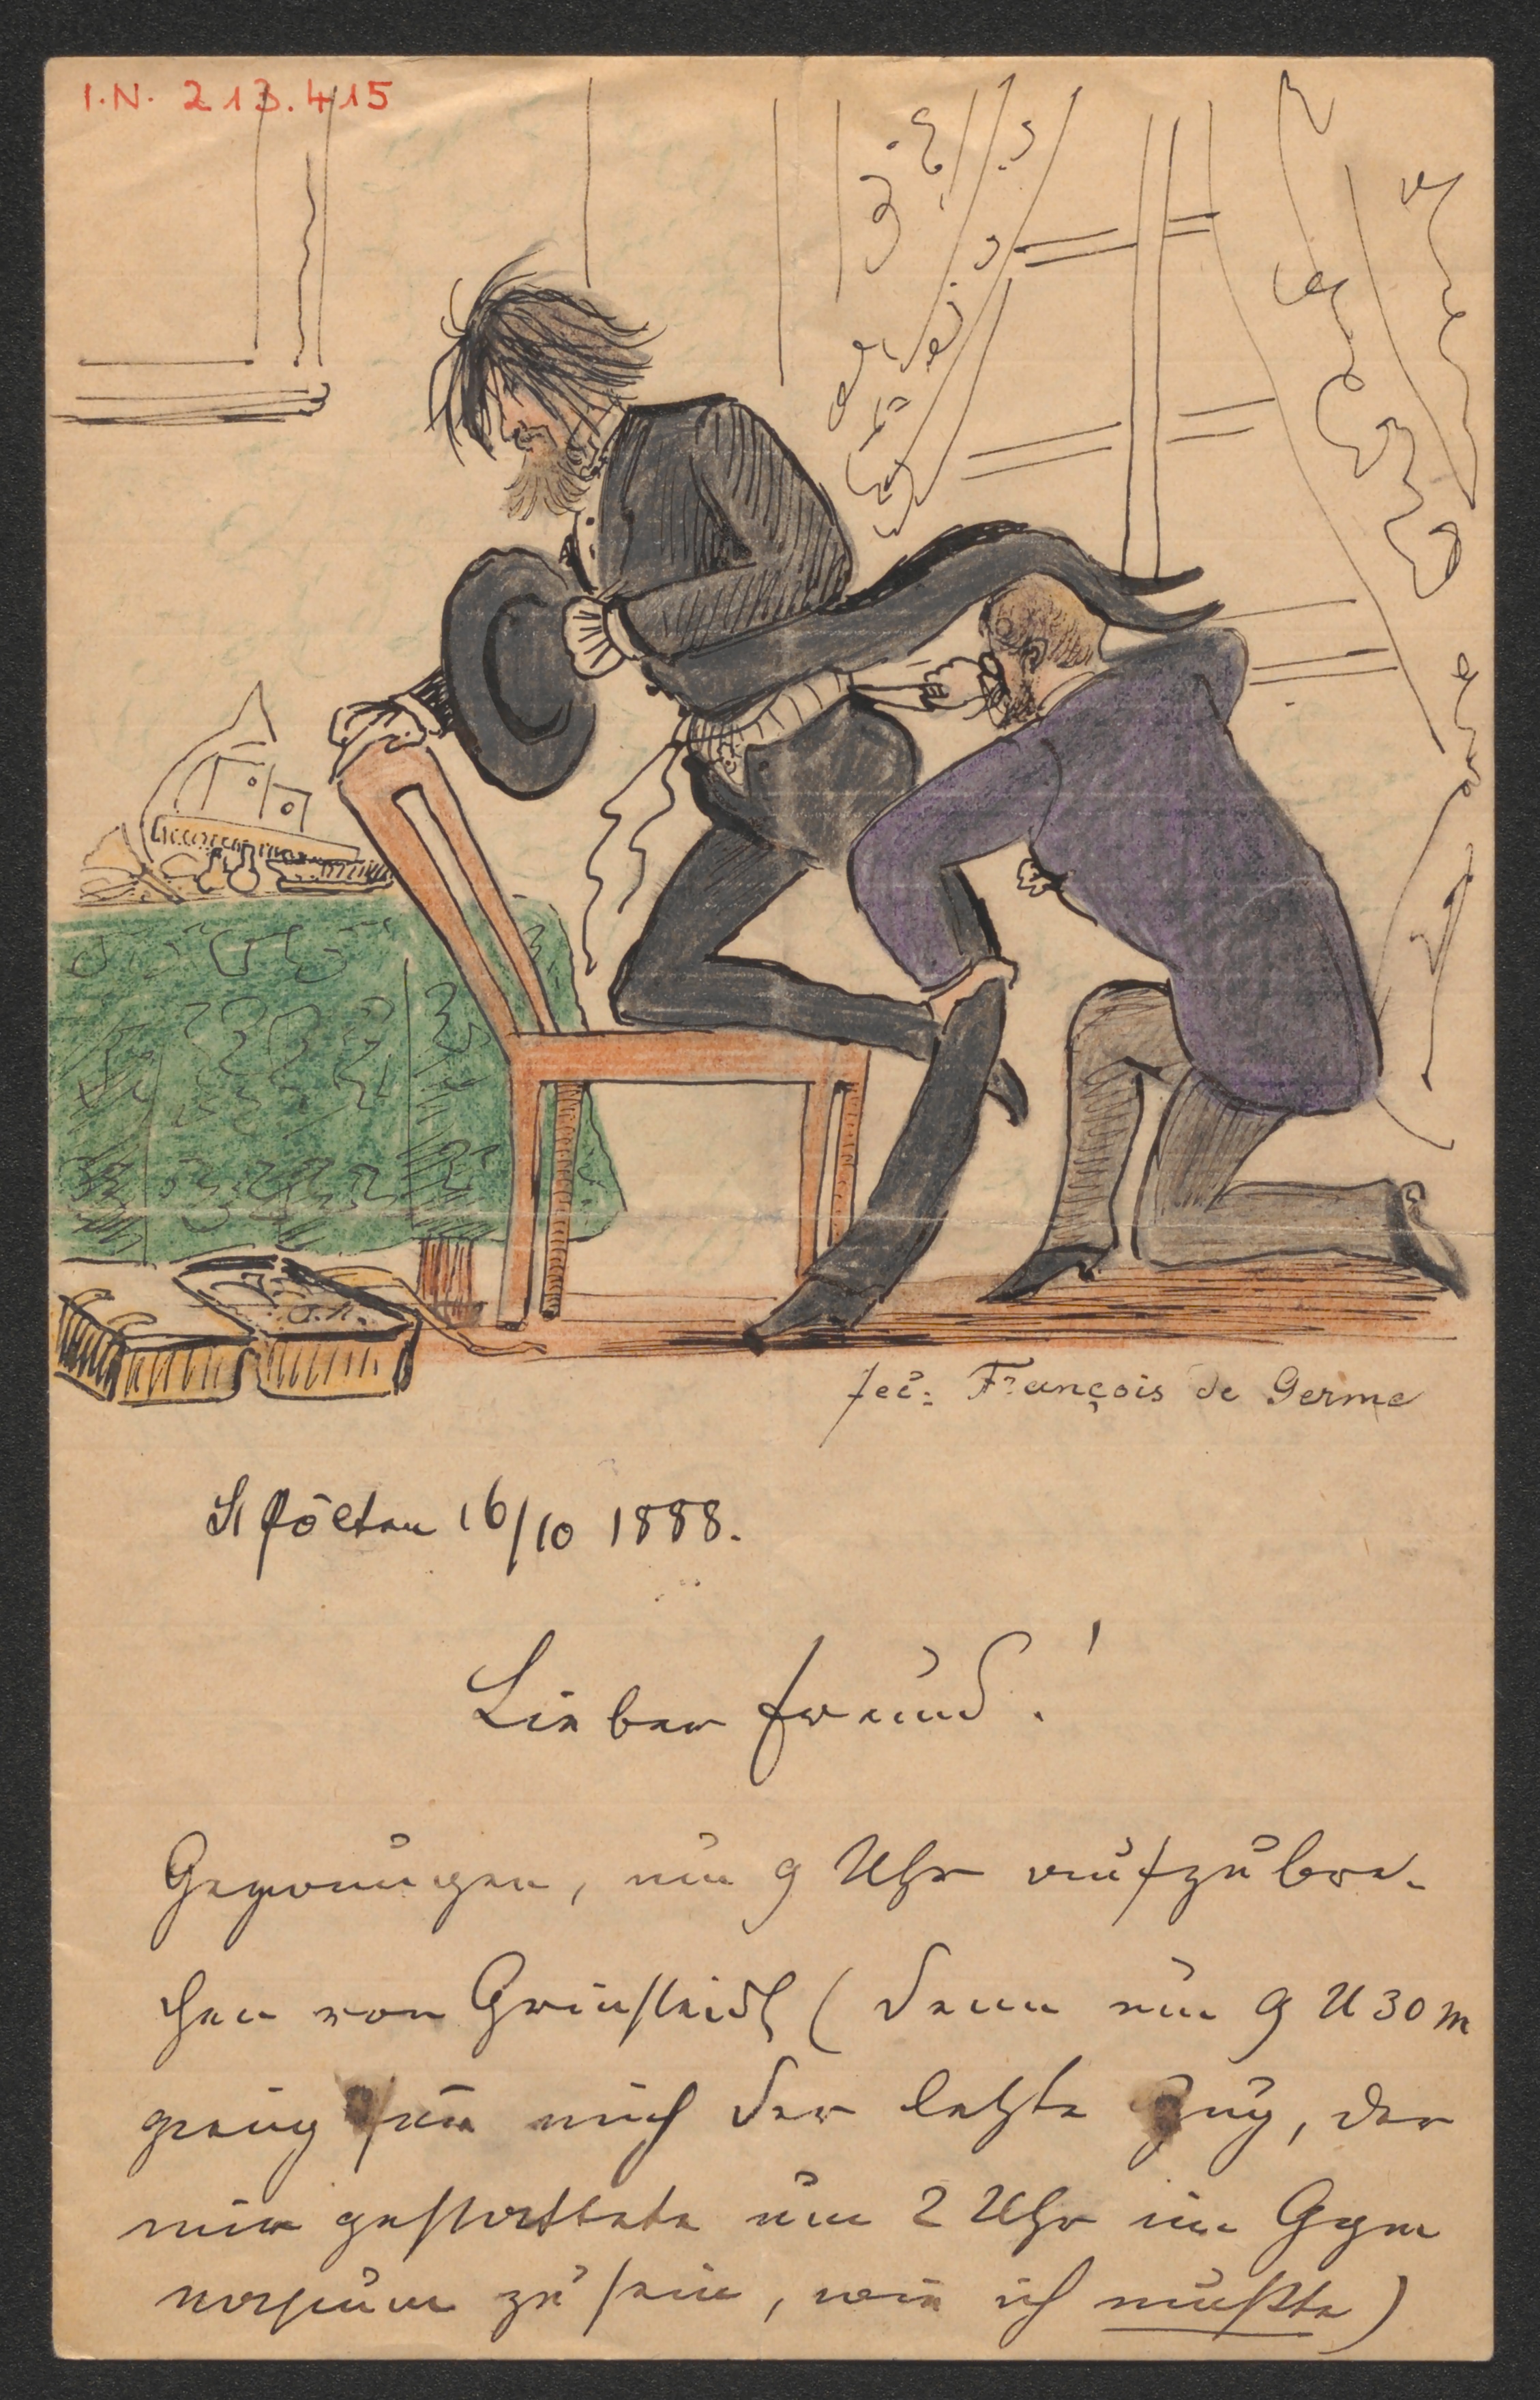 I.N. 213.415
a.H.
fec: François de Germe
St Pölten 16/10 1888.
Lieber Freund!
Gezwungen, um 9 Uhr aufzubre-
chen von Griensteidl (denn um 9 U 30 m
gieng für mich der letzte Zug, der
mir gestattete um 2 Uhr im Gym
nasium zu sein, wie ich mußte)